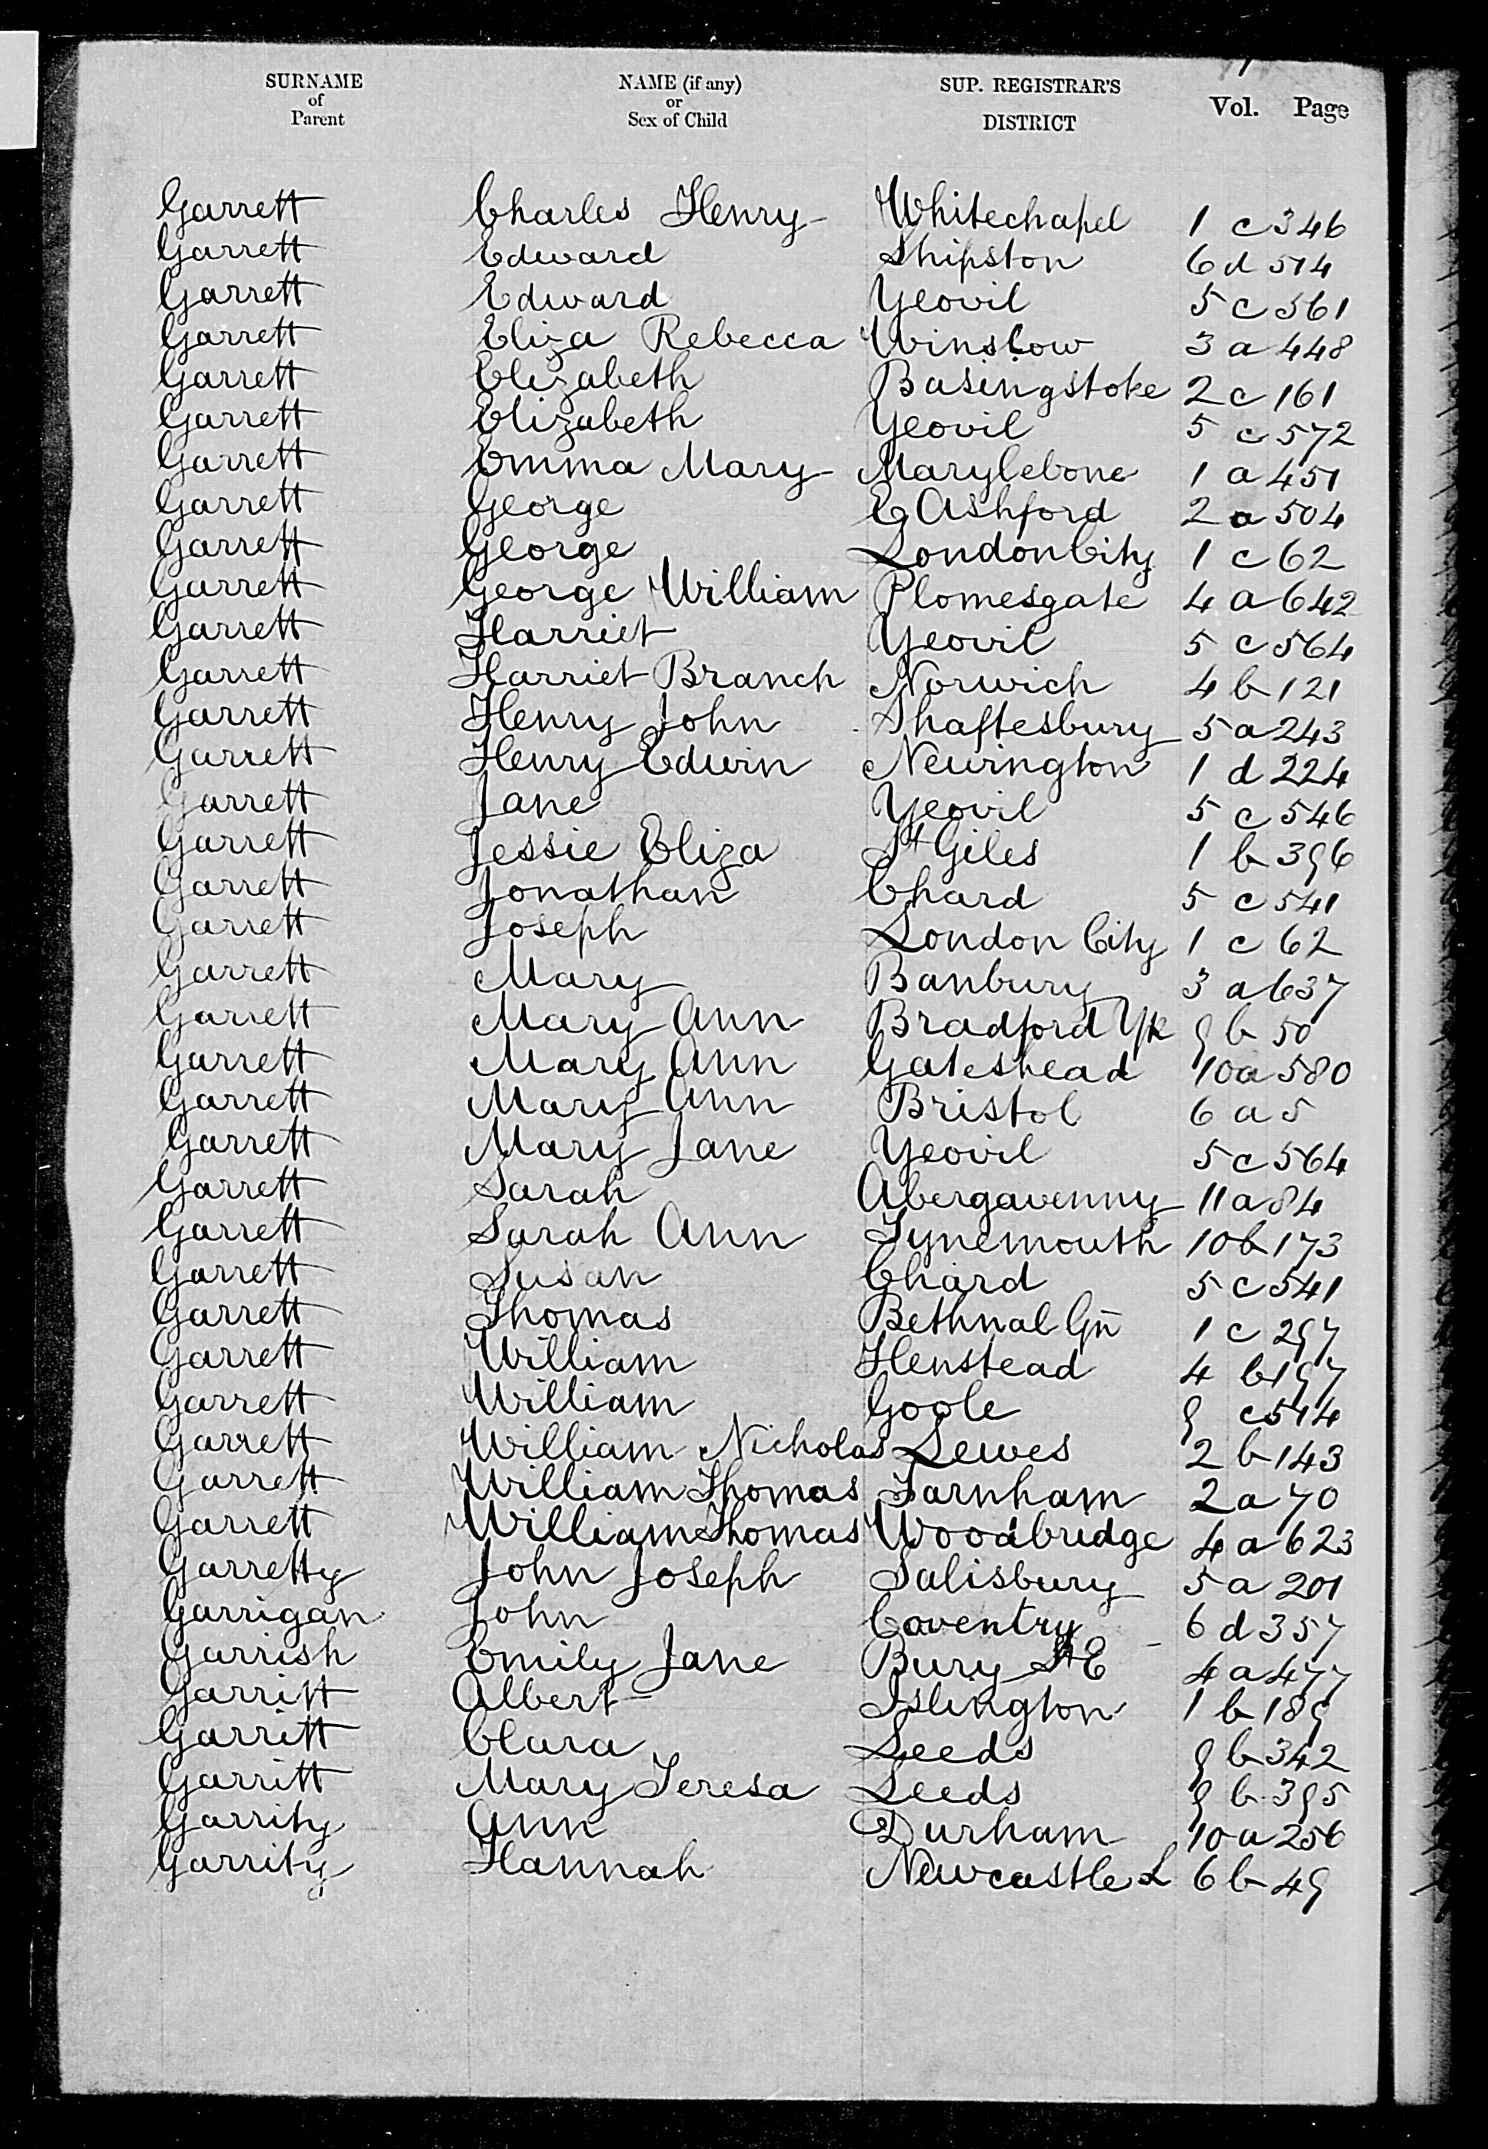 SURNAME of Parent NAME (if any) or Sex of Child SUP. REGISTRAR'S DISTRICT Vol. Page
Garrett Charles Henry Whitechapel 1 c 346
Garrett Edward Shipston 6 d 514
Garrett Edward Yeovil 5 c 561
Garrett Eliza Rebecca Winslow 3 a 448
Garrett Elizabeth Basingstoke 2 c 161
Garrett Elizabeth Yeovil 5 c 572
Garrett Emma Mary Marylebone 1 a 451
Garrett George E Ashford 2 a 504
Garrett George London City 1 c 62
Garrett George William Plomesgate 4 a 642
Garrett Harriet Yeovil 5 c 564
Garrett Harriet Branch Norwich 4 b 121
Garrett Henry John Shaftesbury 5 a 243
Garrett Henry Edwin Newington 1 d 224
Garrett Jane Yeovil 5 c 546
Garrett Jessie Eliza St Giles 1 b 396
Garrett Jonathan Chard 5 c 541
Garrett Joseph London City 1 c 62
Garrett Mary Banbury 3 a 637
Garrett Mary Ann Bradford Yk 9 b 50
Garrett Mary Ann Gateshead 10a 580
Garrett Mary Ann Bristol 6 a 5
Garrett Mary Jane Yeovil 5 c 564
Garrett Sarah Abergavenny 11a 84
Garrett Sarah Ann Tynemouth 10b 173
Garrett Susan Chard 5 c 541
Garrett Thomas Bethnal Gn 1 c 297
Garrett William Henstead 4 b 197
Garrett William Goole 9 c 514
Garrett William Nicholas Lewes 2 b 143
Garrett William Thomas Farnham 2 a 70
Garrett William Thomas Woodbridge 4 a 623
Garretty John Joseph Salisbury 5 a 201
Garrigan John Coventry 6 d 357
Garrish Emily Jane Bury St E 4 a 477
Garritt Albert Islington 1 b 189
Garritt Clara Leeds 9 b 342
Garritt Mary Teresa Leeds 9 b 395
Garrity Ann Durham 10a 256
Garrity Hannah Newcastle L 6 b 49